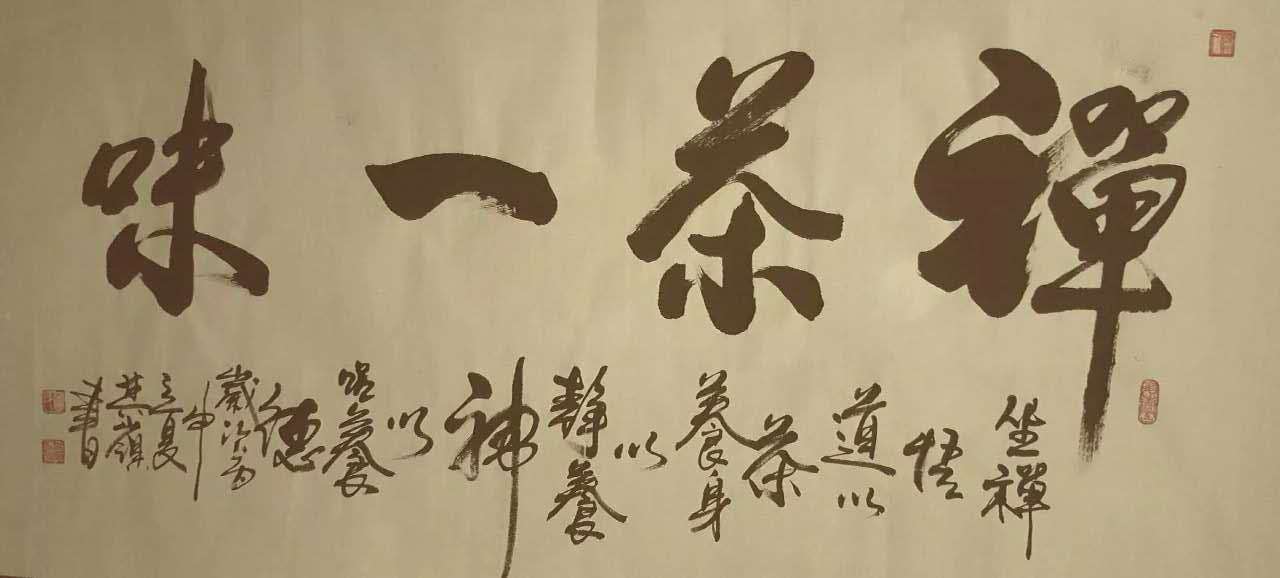 禪茶一味
坐禪
悟
道以
茶
養身
以
靜養
神
以
養
德
歲次丙
申
立夏
嶺
書